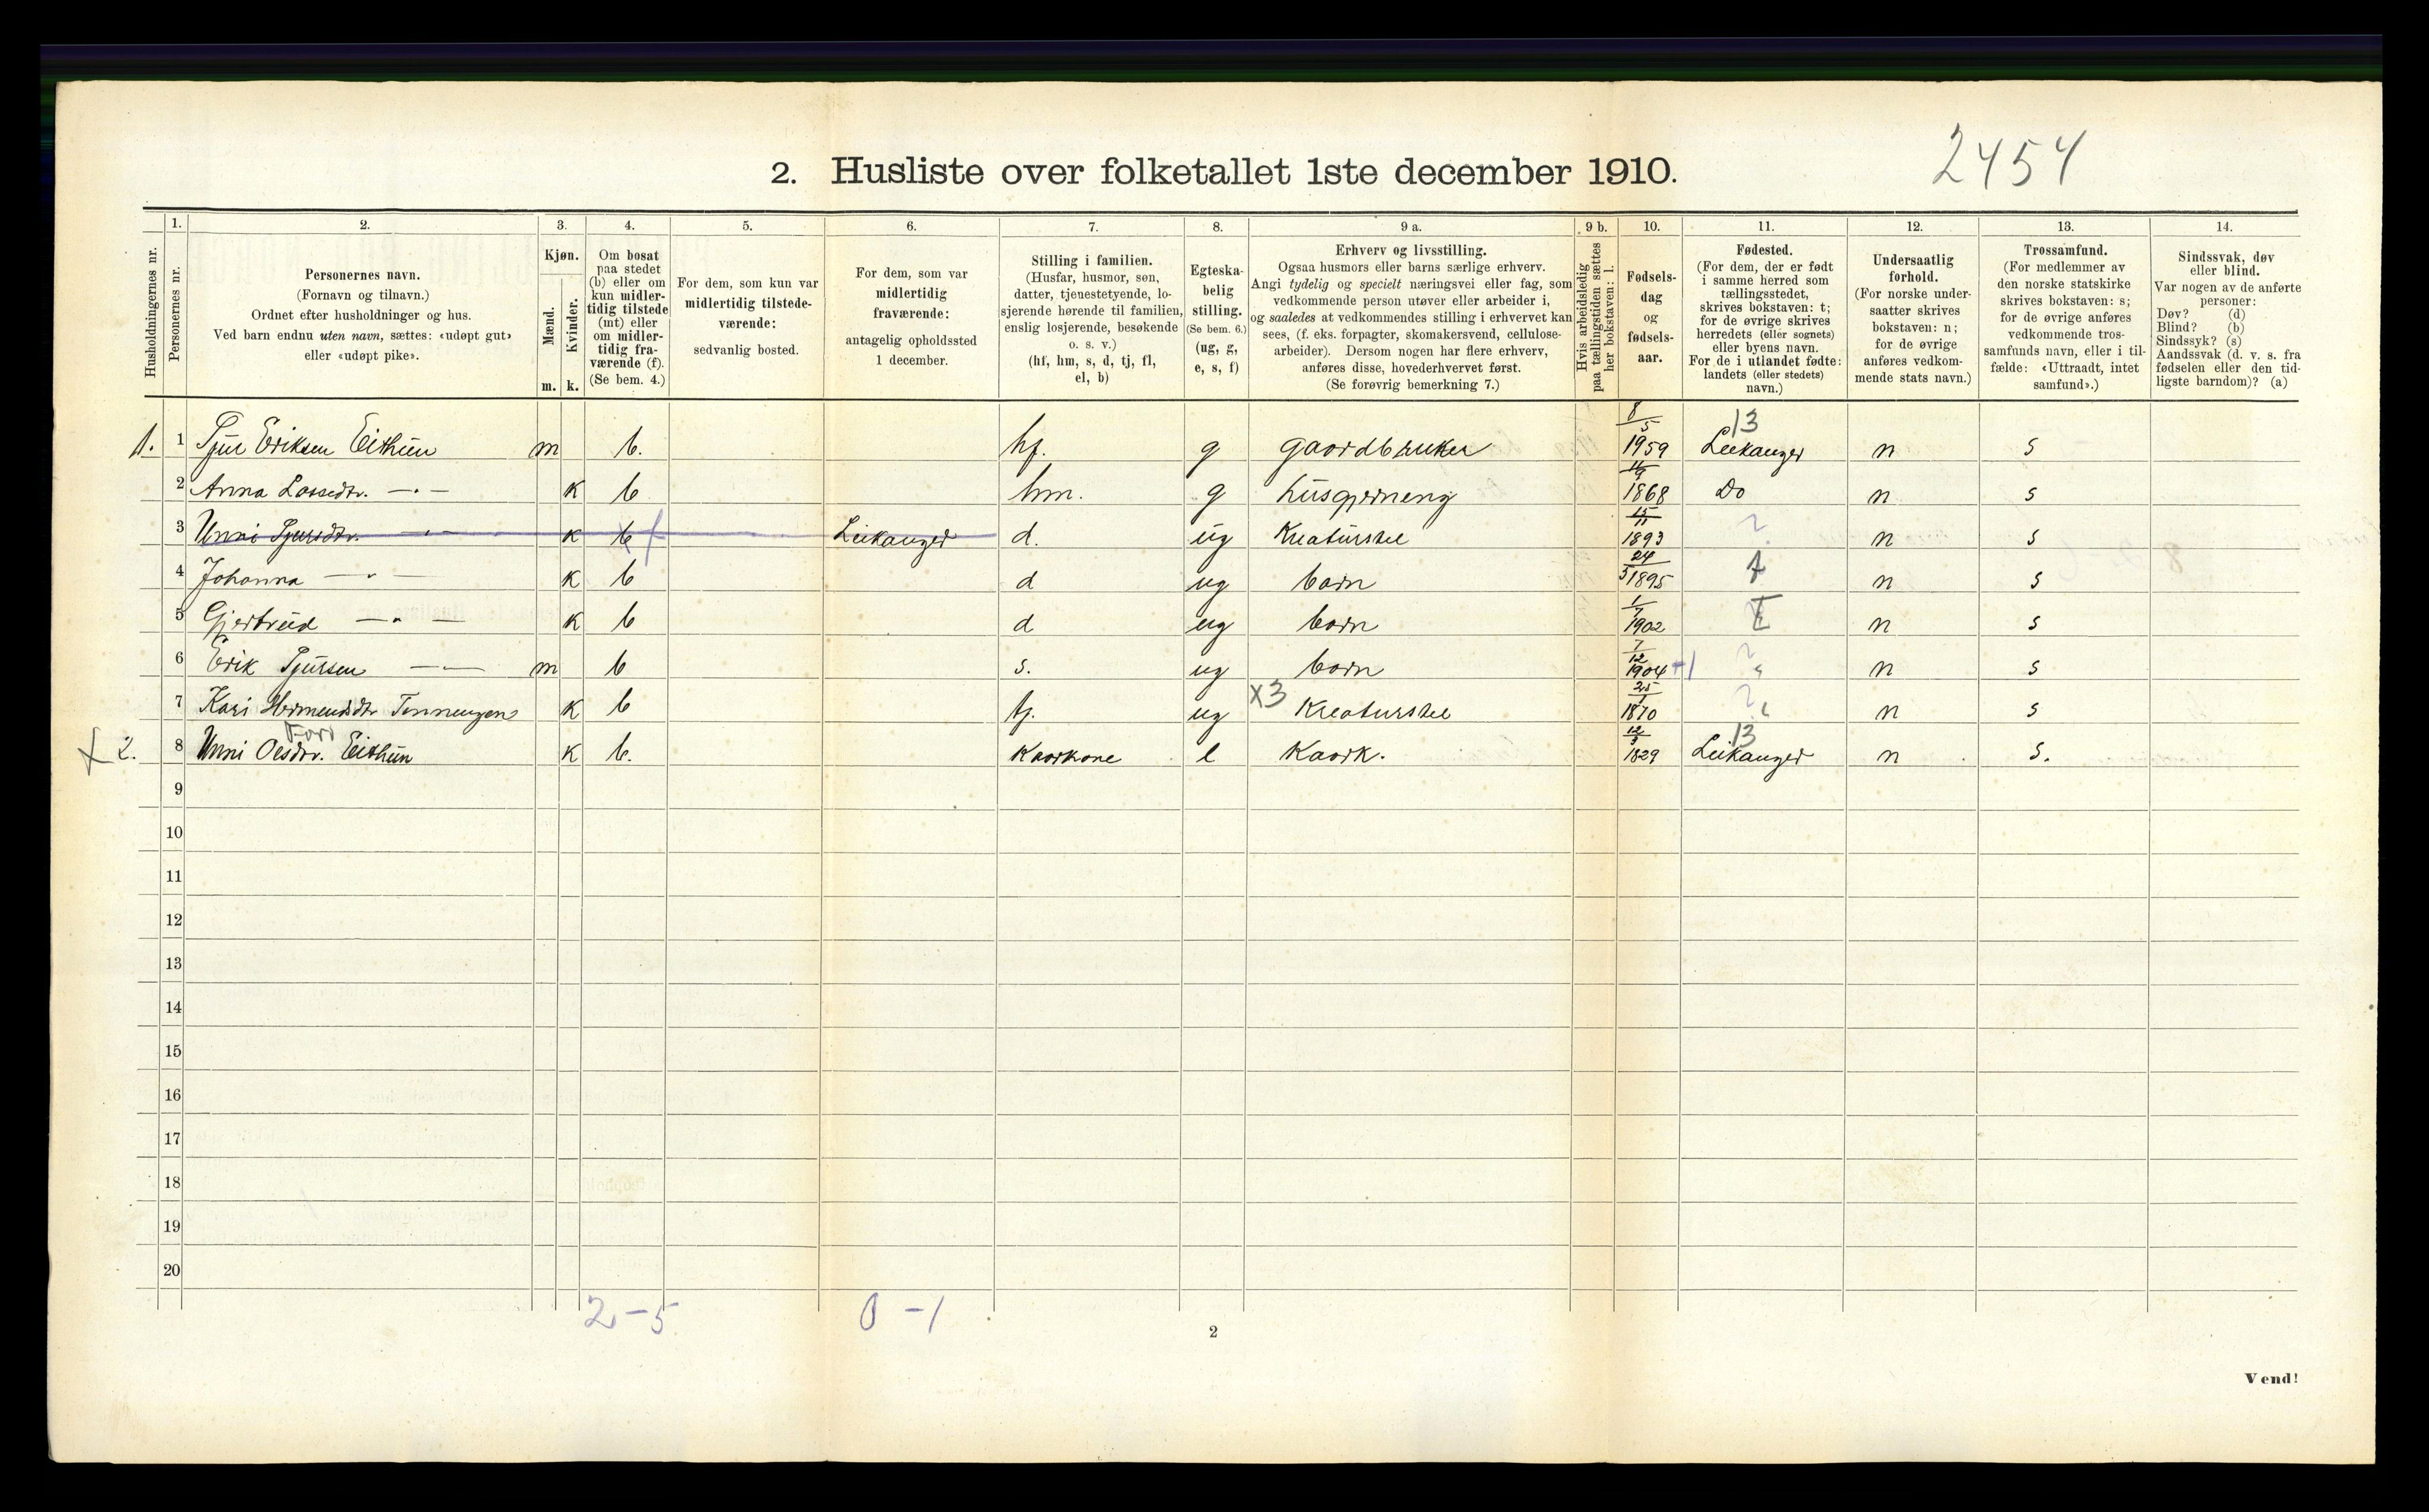 2. Husliste over folketallet 1ste december 1910.
2454
Husholdningernes nr.
1.
Personernes nr.
2.
Personernes navn.
(Fornavn og tilnavn.)
Ordnet efter husholdninger og hus.
Ved barn endnu uten navn, sættes: «udøpt gut»
eller «udøpt pike».
3.
Kjøn.
Mænd.
Kvinder.
m. k.
4.
Om bosat
paa stedet
(b) eller om
kun midler-
tidig tilstede
(mt) eller
om midler-
tidig fra-
værende (f).
(Se bem. 4.)
5.
For dem, som kun var
midlertidig tilstede-
værende:
sedvanlig bosted.
6.
For dem, som var
midlertidig
fraværende:
antagelig opholdssted
1 december.
7.
Stilling i familien.
(Husfar, husmor, søn,
datter, tjenestetyende, lo-
sjerende hørende til familien,
enslig losjerende, besøkende
o. s. v.)
(hf, hm, s, d, tj, fl,
el, b)
8.
Egteska-
belig
stilling.
(Se bem. 6.)
(ug, g,
e, s, f)
9 a.
Erhverv og livsstilling.
Ogsaa husmors eller barns særlige erhverv.
Angi tydelig og specielt næringsvei eller fag, som
vedkommende person utøver eller arbeider i,
og saaledes at vedkommendes stilling i erhvervet kan
sees, (f. eks. forpagter, skomakersvend, cellulose-
arbeider). Dersom nogen har flere erhverv,
anføres disse, hovederhvervet først.
(Se forøvrig bemerkning 7.)
9 b.
Hvis arbeidsledig
paa tællingstiden sættes
her bokstaven: l.
10.
Fødsels-
dag
og
fødsels-
aar.
11.
Fødested.
(For dem, der er født
i samme herred som
tællingsstedet,
skrives bokstaven: t;
for de øvrige skrives
herredets (eller sognets)
eller byens navn.
For de i utlandet fødte:
landets (eller stedets)
navn.)
12.
Undersaatlig
forhold.
(For norske under-
saatter skrives
bokstaven: n;
for de øvrige
anføres vedkom-
mende stats navn.)
13.
Trossamfund.
(For medlemmer av
den norske statskirke
skrives bokstaven: s;
for de øvrige anføres
vedkommende tros-
samfunds navn, eller i til-
fælde: «Uttraadt, intet
samfund».)
14.
Sindssvak, døv
eller blind.
Var nogen av de anførte
personer:
Døv? (d)
Blind? (b)
Sindssyk? (s)
Aandssvak (d. v. s. fra
fødselen eller den tid-
ligste barndom)? (a)
1. 1 Tjur Eriksen Eithun m b. hf. g gaardbruker 8/5 1959 13 Leikanger n s
2 Anna Lassedtr. —"— k b hm. g husgjerneng 1868 Do n s
3 Unni Tjursdtr. —"— k b f Leikanger d. ug Kreaturstel 15/11 1893 n s
4 Johanna —"— k b d ug barn 24/5 1895 t n s
5 Gjertrud —"— k b d ug barn 1/7 1902 t n s
6 Erik Tjursen —"— m b s. ug barn 7/12 1904 +1 " n s
7 Kari Hermundsdtr k b tj. ug x3 Kreaturstel 25/1 1870 " n s
x 2. 8 Unni Olsdtr. Eithun k b. Kaarkone e Kaark. 12/3 1829 13 Leikanger n s.
9
10
11
12
13
14
15
16
17
18
19
20
2-5 0-1
2
Vend!